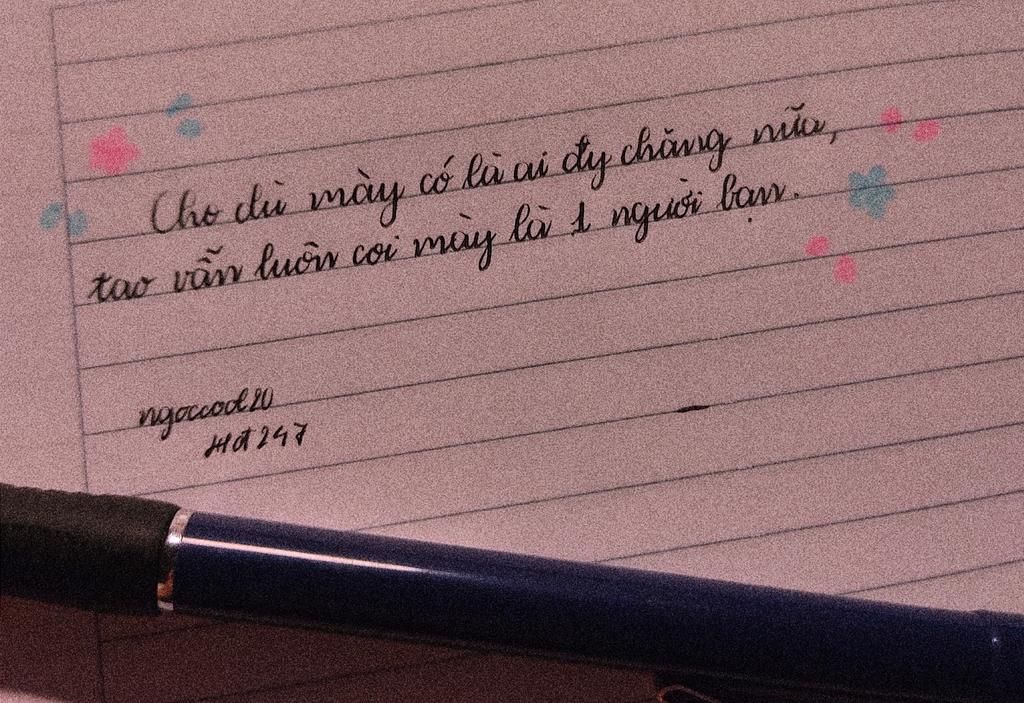 Cho dù mày có là ai đy chăng nữa,
tao vẫn luôn coi mày là 1 người bạn.
ngoccool20
Hđ247